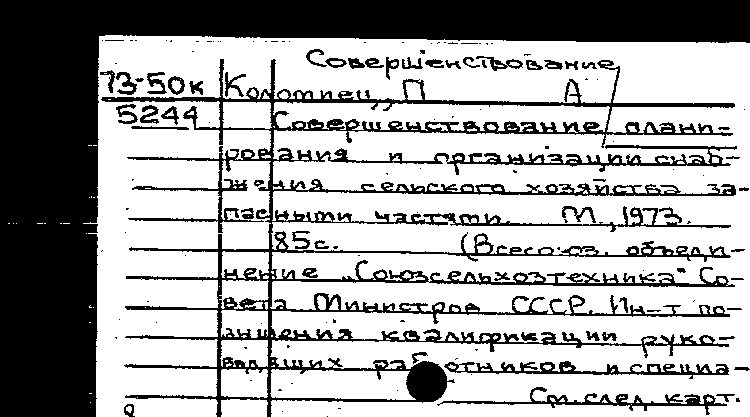 Совершенствование
73-50к Коломиец, П А
5244 Совершенствование плани-
рования и организации снаб-
жения сельского хозяйства за-
пасными частями. М., 1973.
85с. (Всесоюз. объеди-
нение „Союзсельхозтехника" Со-
вета Министров СССР. Ин-т по-
вышения квалификации руко-
водящих работников и специа-
См. след. карт.